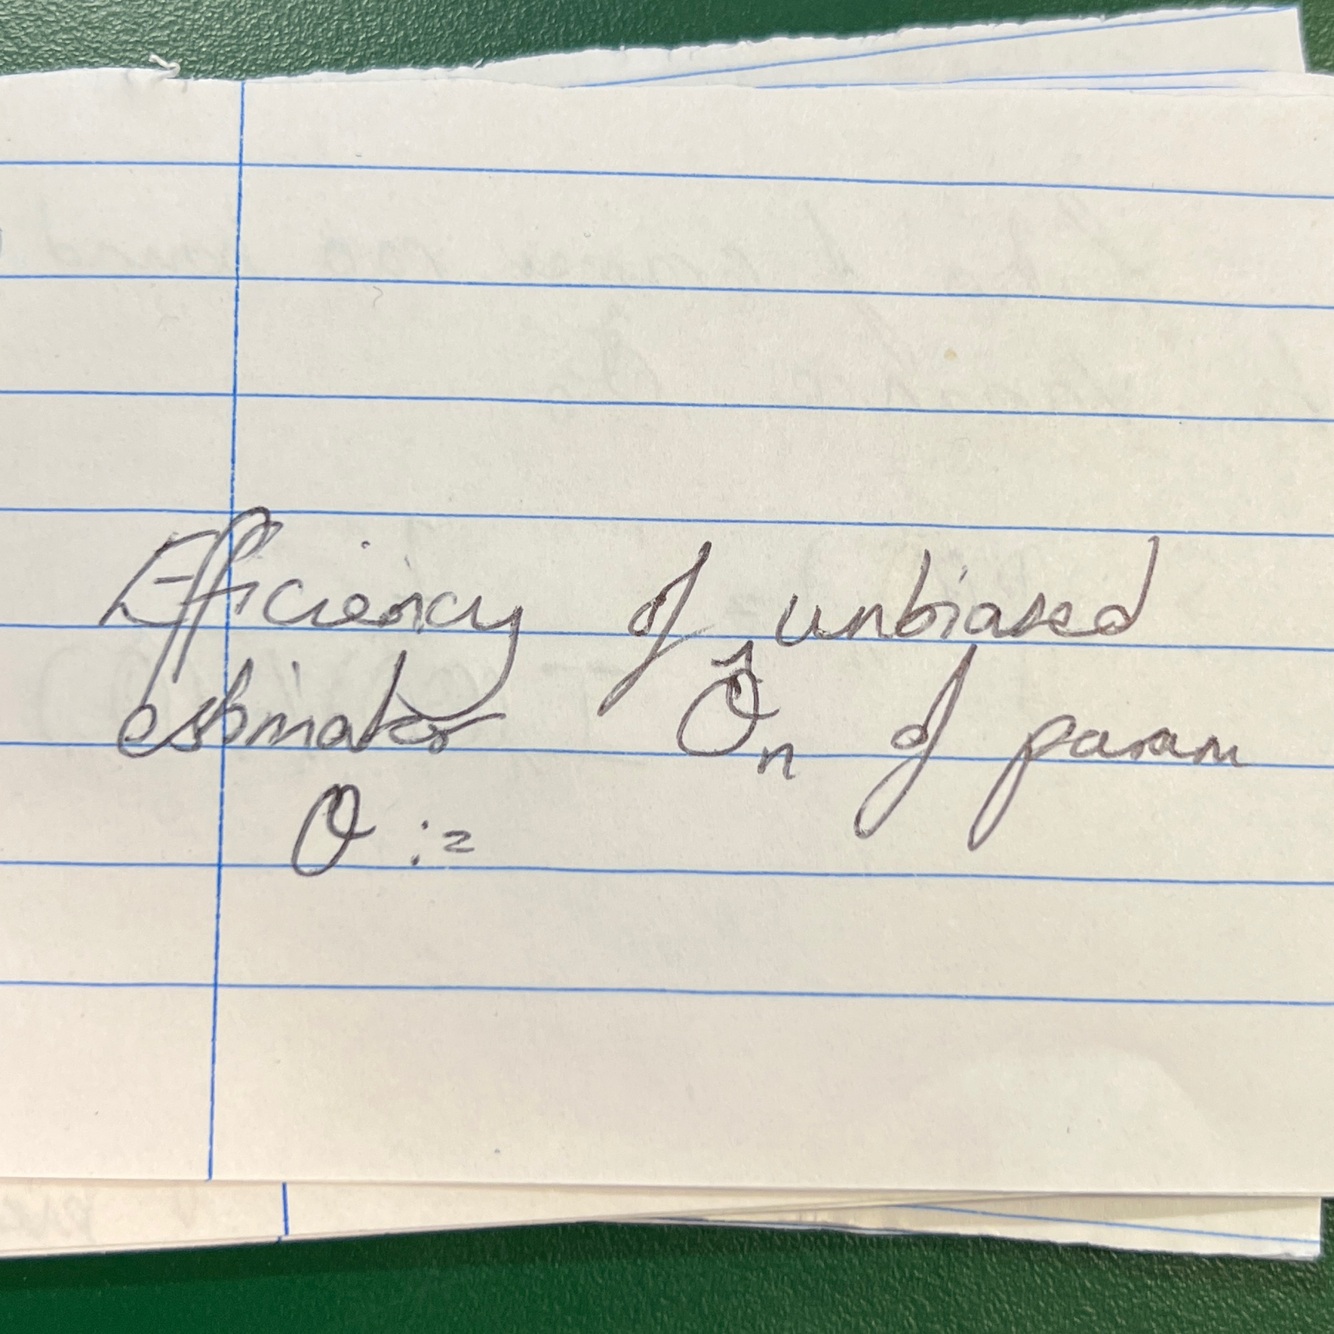 Efficiency of unbiased
estimator θ̂ₙ of param
θ :=